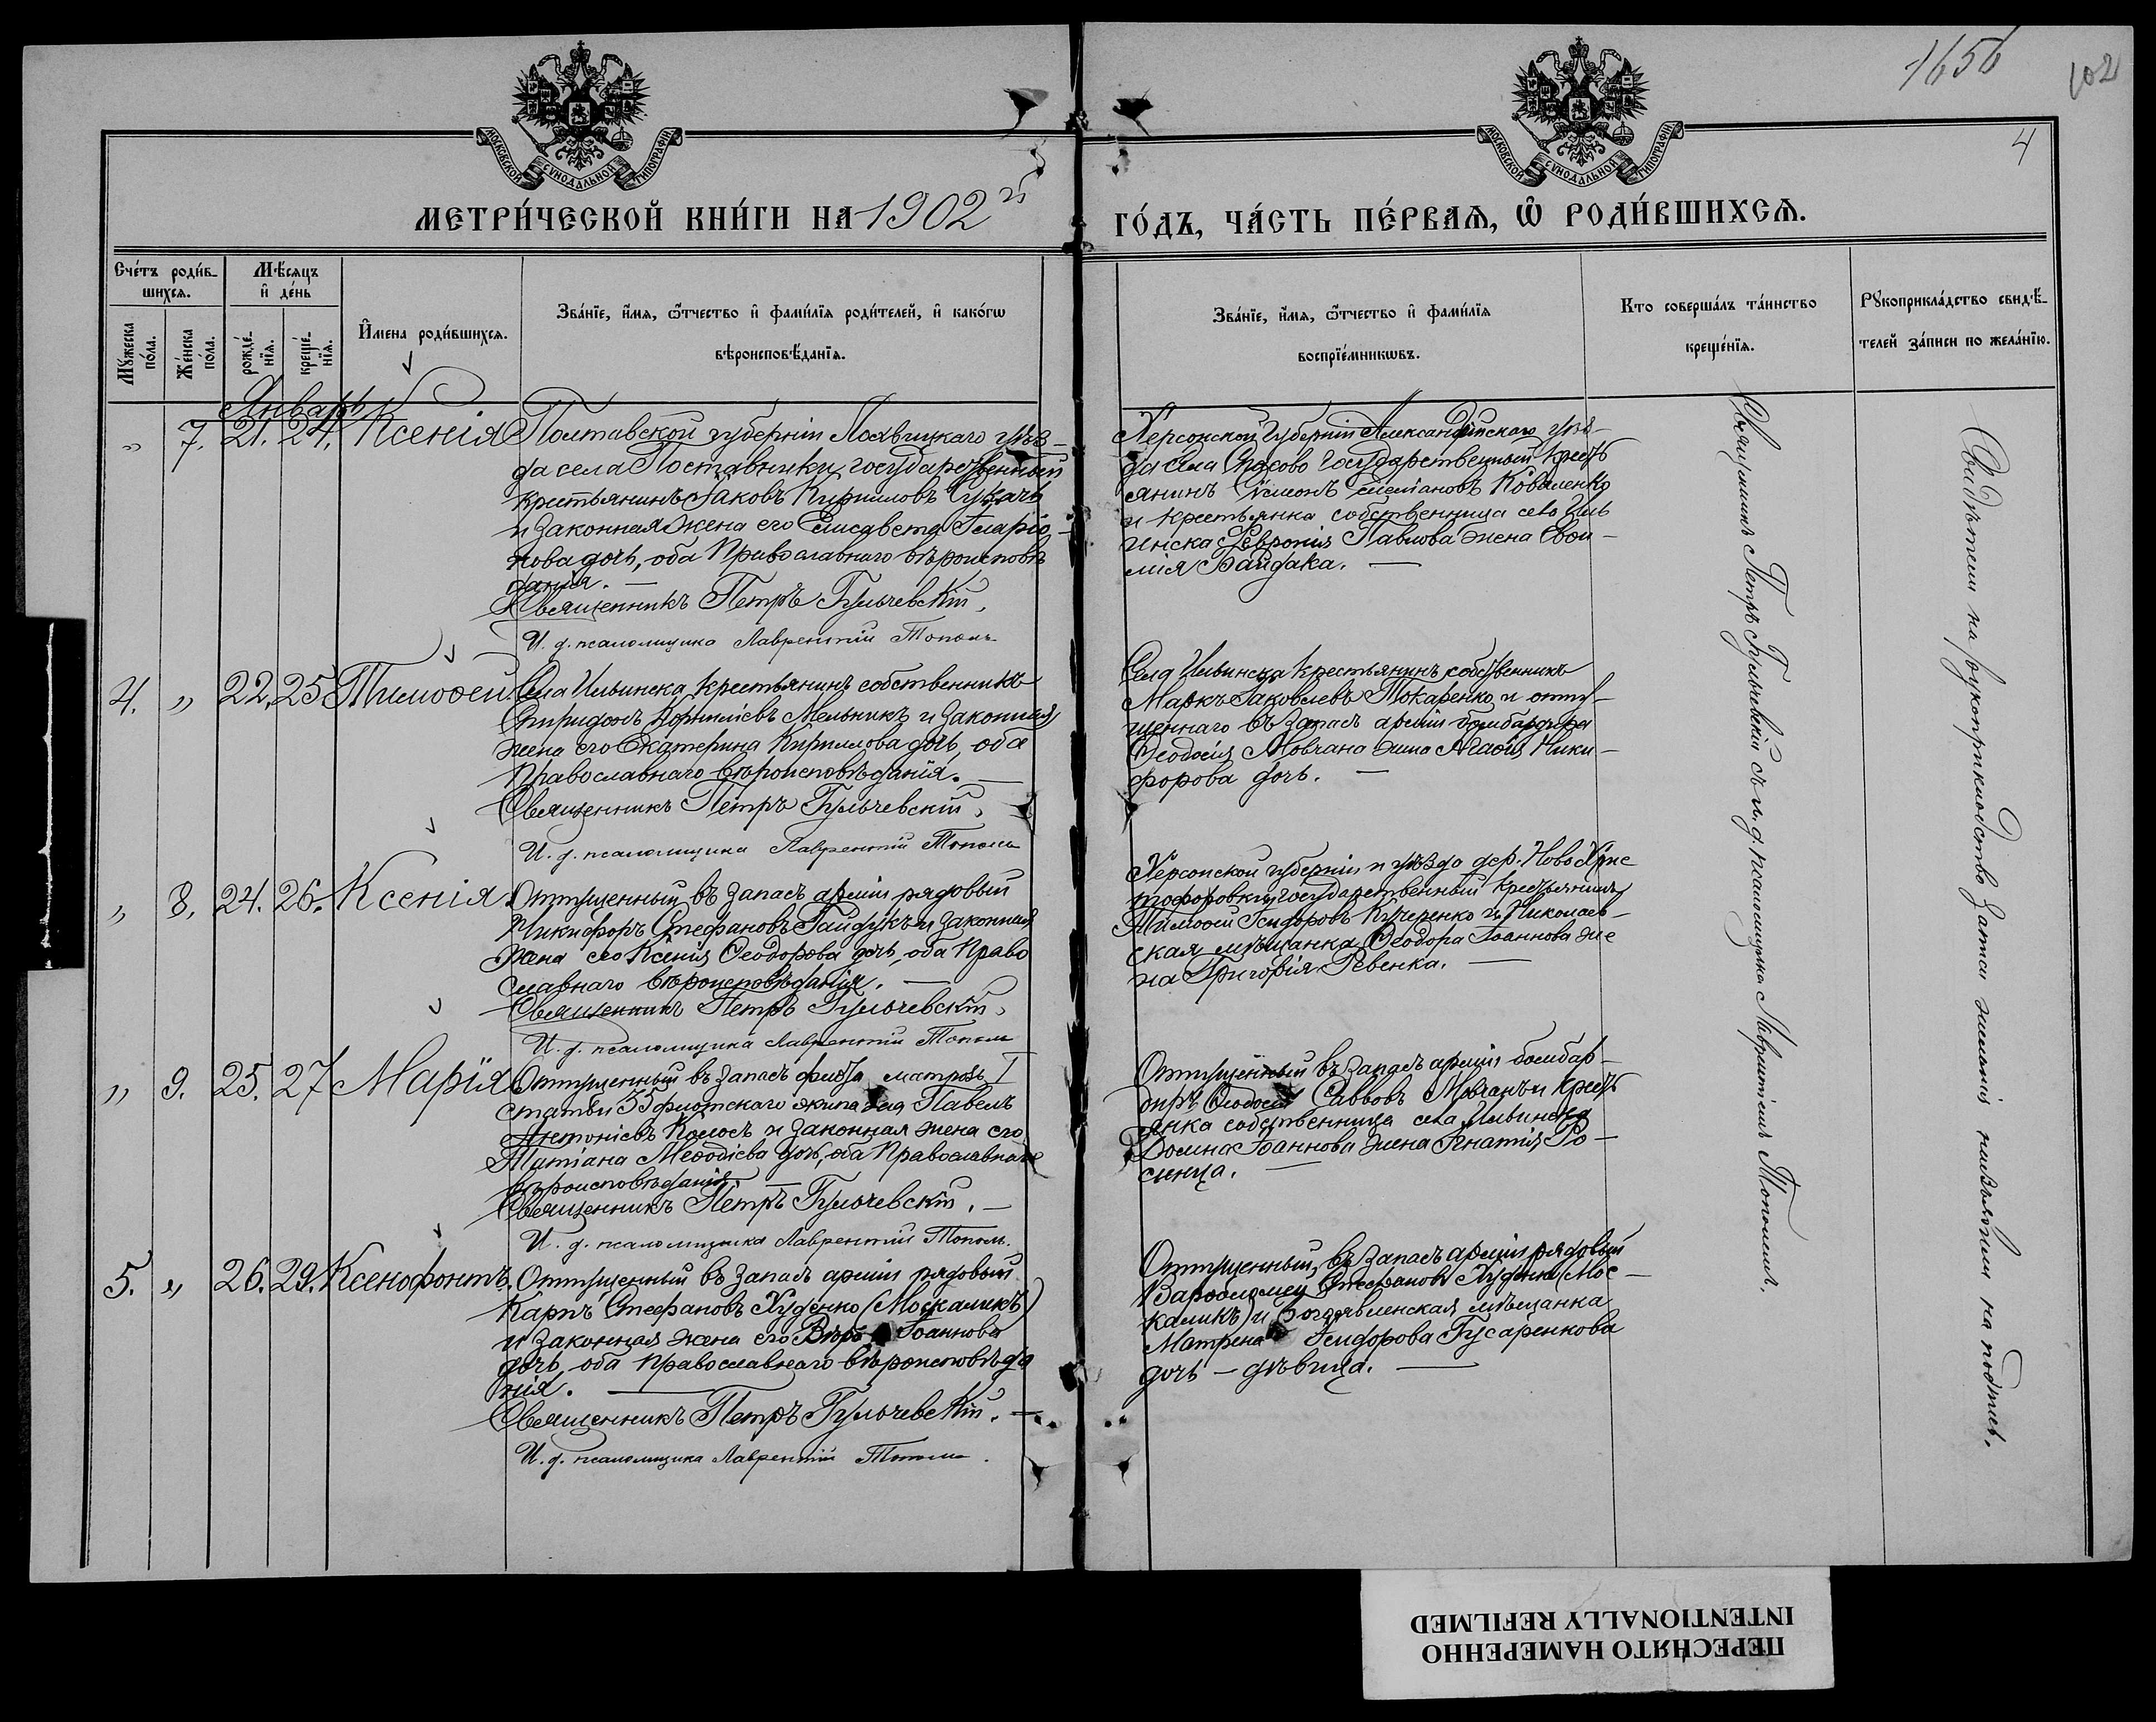 1656
102
4
МОСКОВСКОЙ СѴНОДАЛЬНОЙ ТИПОГРАФІИ
МОСКОВСКОЙ СѴНОДАЛЬНОЙ ТИПОГРАФІИ
МЕТРИ́ЧЕСКОЙ КНИ́ГИ НА 1902 й
ГО́ДЪ, ЧА́СТЬ ПЕ́РВАѦ, Ѡ҆ РОДИ́ВШИХСѦ.
Сче́тъ роди́в-
шихсѧ.
Мꙋ́жеска по́ла.
Же́нска по́ла.
Мѣ́сѧцъ
и҆ де́нь
рожде́-нїѧ.
креще́-нїѧ.
И҆мена роди́вшихсѧ.
Зва́нїе, и҆́мѧ, ѻ҆́тчество и҆ фами́лїѧ роди́телей, и҆ како́гѡ
вѣроисповѣ́данїѧ.
Зва́нїе, и҆́мѧ, ѻ҆́тчество и҆ фами́лїѧ
воспрїе́мникѡвъ.
Кто соверша́лъ та́инство
креще́нїѧ.
Рꙋкоприкла́дство свидѣ́-
телей за́писи по жела́нїю.
Январь
" 7. 21. 24. Ксенія
Полтавской губерніи Лохвицкаго уѣз-
да села Поставмуки государственный
крестьянинъ Іаковъ Кирилловъ
и законная жена его Елисавета Иларіо-
нова дочь, оба Православнаго вѣроисповѣ
данія. —
Священникъ Петръ Гульчевскій.
И. д. псаломщика Лаврентій Тополь
Херсонской Губерніи Александрійскаго уѣз-
да села Спасово Государственный крест
янинъ Симонъ Коваленко
и крестьянка собственница села Иль
инска Февронія Павлова жена
Байдака. —
4. " 22. 25 Тимоѳей
Села Ильинска крестьянинъ собственникъ
Спиридонъ Корниліевъ Мельникъ и законная
жена его Екатерина Кириллова дочь, оба
Православнаго вѣроисповѣданія. —
Священникъ Петръ Гульчевскій.
И. д. псаломщика Лаврентій Тополь
Села Ильинска крестьянинъ собственникъ
Маркъ Іаковлевъ Токаренко и отпу-
щеннаго въ запасъ арміи бомбардира
Ѳеодосія Мовчана жена Агаѳія Ники-
форова дочь. —
" 8. 24. 26. Ксенія
Отпущенный въ запасъ арміи рядовый
Никифоръ Стефановъ Гайдукъ и законная
жена его Ксенія Ѳеодорова дочь, оба Право
славнаго вѣроисповѣданія. —
Священникъ Петръ Гульчевскій.
И. д. псаломщика Лаврентій Тополь
Херсонской губерніи и уѣзда дер. Ново Хри
тофоровки государственный крестьянинъ
Тимоѳей Исидоровъ Кучеренко и Николаев-
ская мѣщанка Ѳеодора Іоаннова же
на Григорія Ревенка. —
" 9. 25. 27 Марія
Отпущенный въ запасъ флота матросъ I
статьи 35 флотскаго экипажа Павелъ
Антоніевъ Колосъ и законная жена его
Татіана Меѳодіева дочь, оба Православнаго
вѣроисповѣданія. —
Священникъ Петръ Гульчевскій. —
И. д. псаломщика Лаврентій Тополь.
Отпущенный въ запасъ арміи бомбар-
диръ Ѳеодосій Саввовъ Мовчанъ и крест
янка собственница села Ильинска
Домна Іоаннова жена Игнатія Ро-
синца. —
5. " 26. 29. Ксенофонтъ.
Отпущенный въ запасъ арміи рядовый
Карпъ Стефановъ Худенко (Москаликъ)
и законная жена его Вѣра Іоаннова
дочь, оба православнаго вѣроисповѣда
нія. —
Священникъ Петръ Гульчевскій. —
И. д. псаломщика Лаврентій Тополь.
Отпущенный въ запасъ арміи рядовый
Варѳоломей Стефановъ Худенко (Мос-
каликъ) и Богоявленская мѣщанка
Матрена Исидорова Гусаренкова
дочь — дѣвица. —
Священникъ Петръ Гульчевскій съ и. д. псаломщика Лаврентіемъ Тополемъ.
Свидѣтели на рукоприкладство записи желанія изъявили на подпись.
ПЕРЕСНЯТО НАМЕРЕННО
INTENTIONALLY REFILMED